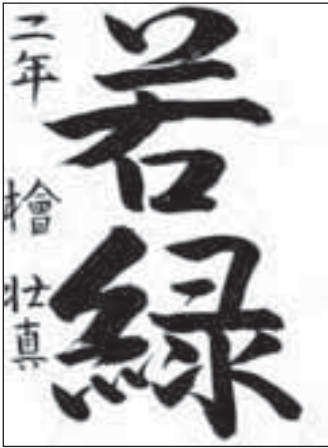 若緑
二年 檜 壮真